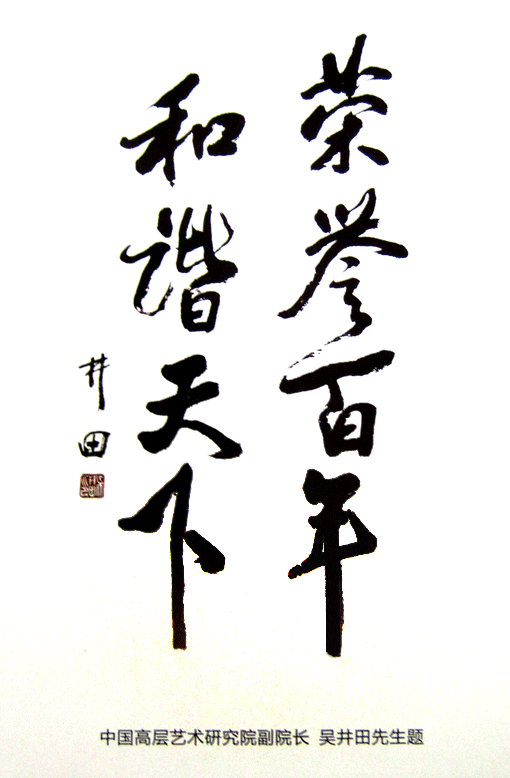 荣誉百年
和谐天下
井田
中国高层艺术研究院副院长 吴井田先生题